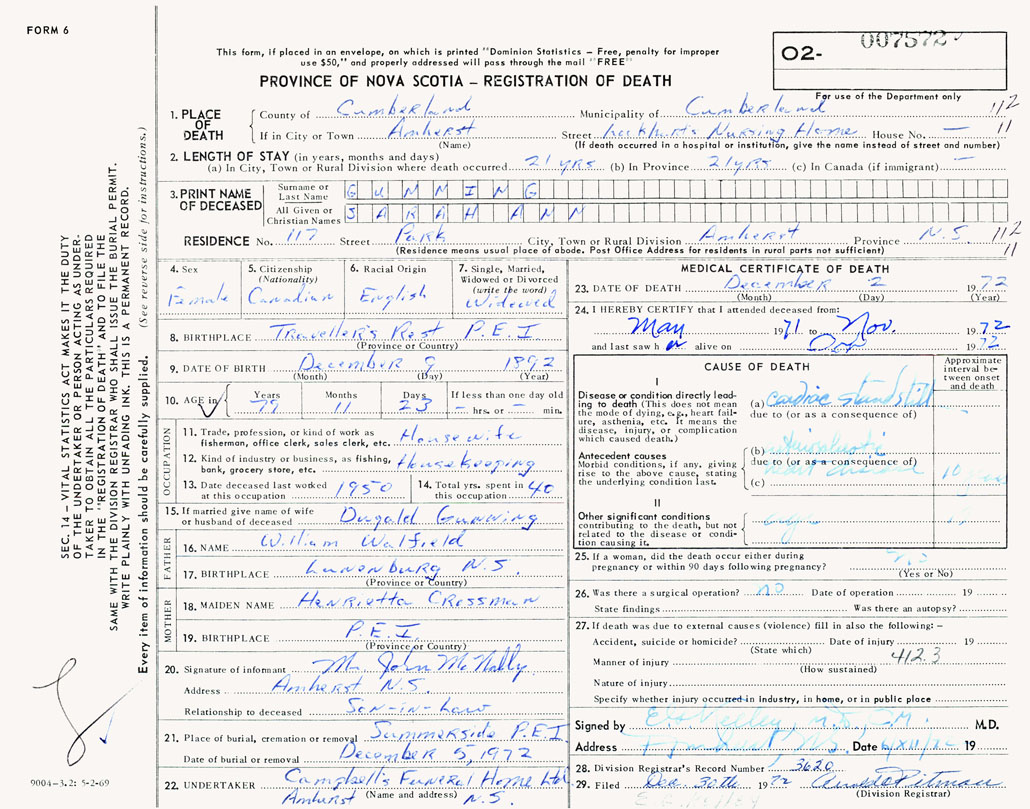 FORM 6
This form, if placed in an envelope, on which is printed "Dominion Statistics – Free, penalty for improper
use $50," and properly addressed will pass through the mail "FREE"
PROVINCE OF NOVA SCOTIA – REGISTRATION OF DEATH
O2- 007572
For use of the Department only
1. PLACE OF DEATH
County of Cumberland Municipality of Cumberland 112
If in City or Town Amherst Street Lockhart's Nursing Home House No. — 11
(Name) (If death occurred in a hospital or institution, give the name instead of street and number)
2. LENGTH OF STAY (in years, months and days)
(a) In City, Town or Rural Division where death occurred 21 yrs. (b) In Province 21 yrs (c) In Canada (if immigrant) —
3. PRINT NAME OF DECEASED
Surname or Last Name GUNNING
All Given or Christian Names SARAH ANN
RESIDENCE No. 117 Street Park City, Town or Rural Division Amherst Province N.S. 112
(Residence means usual place of abode. Post Office Address for residents in rural parts not sufficient) 11
4. Sex Female
5. Citizenship (Nationality) Canadian
6. Racial Origin English
7. Single, Married, Widowed or Divorced (write the word) Widowed
8. BIRTHPLACE Traveller's Rest P.E.I.
(Province or Country)
9. DATE OF BIRTH December 9 1892
(Month) (Day) (Year)
10. AGE in Years 79 Months 11 Days 23 If less than one day old – hrs. or – min.
OCCUPATION
11. Trade, profession, or kind of work as
fisherman, office clerk, sales clerk, etc. Housewife
12. Kind of industry or business, as fishing,
bank, grocery store, etc. Housekeeping
13. Date deceased last worked
at this occupation 1950
14. Total yrs. spent in
this occupation 40
15. If married give name of wife
or husband of deceased Dugald Gunning
FATHER
16. NAME William Walfield
17. BIRTHPLACE Lunenburg N.S.
(Province or Country)
MOTHER
18. MAIDEN NAME Henrietta Crossman
19. BIRTHPLACE P.E.I.
(Province or Country)
20. Signature of informant Mr. John McNally
Address Amherst N.S.
Relationship to deceased Son-in-Law
21. Place of burial, cremation or removal Summerside P.E.I.
Date of burial or removal December 5, 1972
22. UNDERTAKER Campbell's Funeral Home Ltd
(Name and address)
Amherst N.S.
MEDICAL CERTIFICATE OF DEATH
23. DATE OF DEATH December 2 1972
(Month) (Day) (Year)
24. I HEREBY CERTIFY that I attended deceased from:
May 1971 to Nov. 1972
and last saw her alive on 1972
CAUSE OF DEATH
Approximate interval between onset and death
I
Disease or condition directly leading
to death (This does not mean
the mode of dying, e.g., heart failure,
asthenia, etc. It means the
disease, injury, or complication
which caused death.)
(a) cardiac standstill
due to (or as a consequence of)
Antecedent causes
Morbid conditions, if any, giving
rise to the above cause, stating
the underlying condition last.
(b)
due to (or as a consequence of)
(c) 10
II
Other significant conditions
contributing to the death, but not
related to the disease or condition
causing it.
25. If a woman, did the death occur either during
pregnancy or within 90 days following pregnancy?
(Yes or No)
26. Was there a surgical operation? no Date of operation 19
State findings Was there an autopsy?
27. If death was due to external causes (violence) fill in also the following: –
Accident, suicide or homicide? Date of injury 19
(State which) 412.3
Manner of injury
(How sustained)
Nature of injury
Specify whether injury occurred in industry, in home, or in public place
Signed by M.D.
Address Date 19
28. Division Registrar's Record Number 3620
29. Filed Dec. 30th 1972 Pitman
(Division Registrar)
SEC. 14 – VITAL STATISTICS ACT MAKES IT THE DUTY
OF THE UNDERTAKER OR PERSON ACTING AS UNDER-
TAKER TO OBTAIN ALL THE PARTICULARS REQUIRED
IN THE "REGISTRATION OF DEATH" AND TO FILE THE
SAME WITH THE DIVISION REGISTRAR WHO SHALL ISSUE THE BURIAL PERMIT.
WRITE PLAINLY WITH UNFADING INK. THIS IS A PERMANENT RECORD.
Every item of information should be carefully supplied. (See reverse side for instructions.)
9004-3.2: 5-2-69